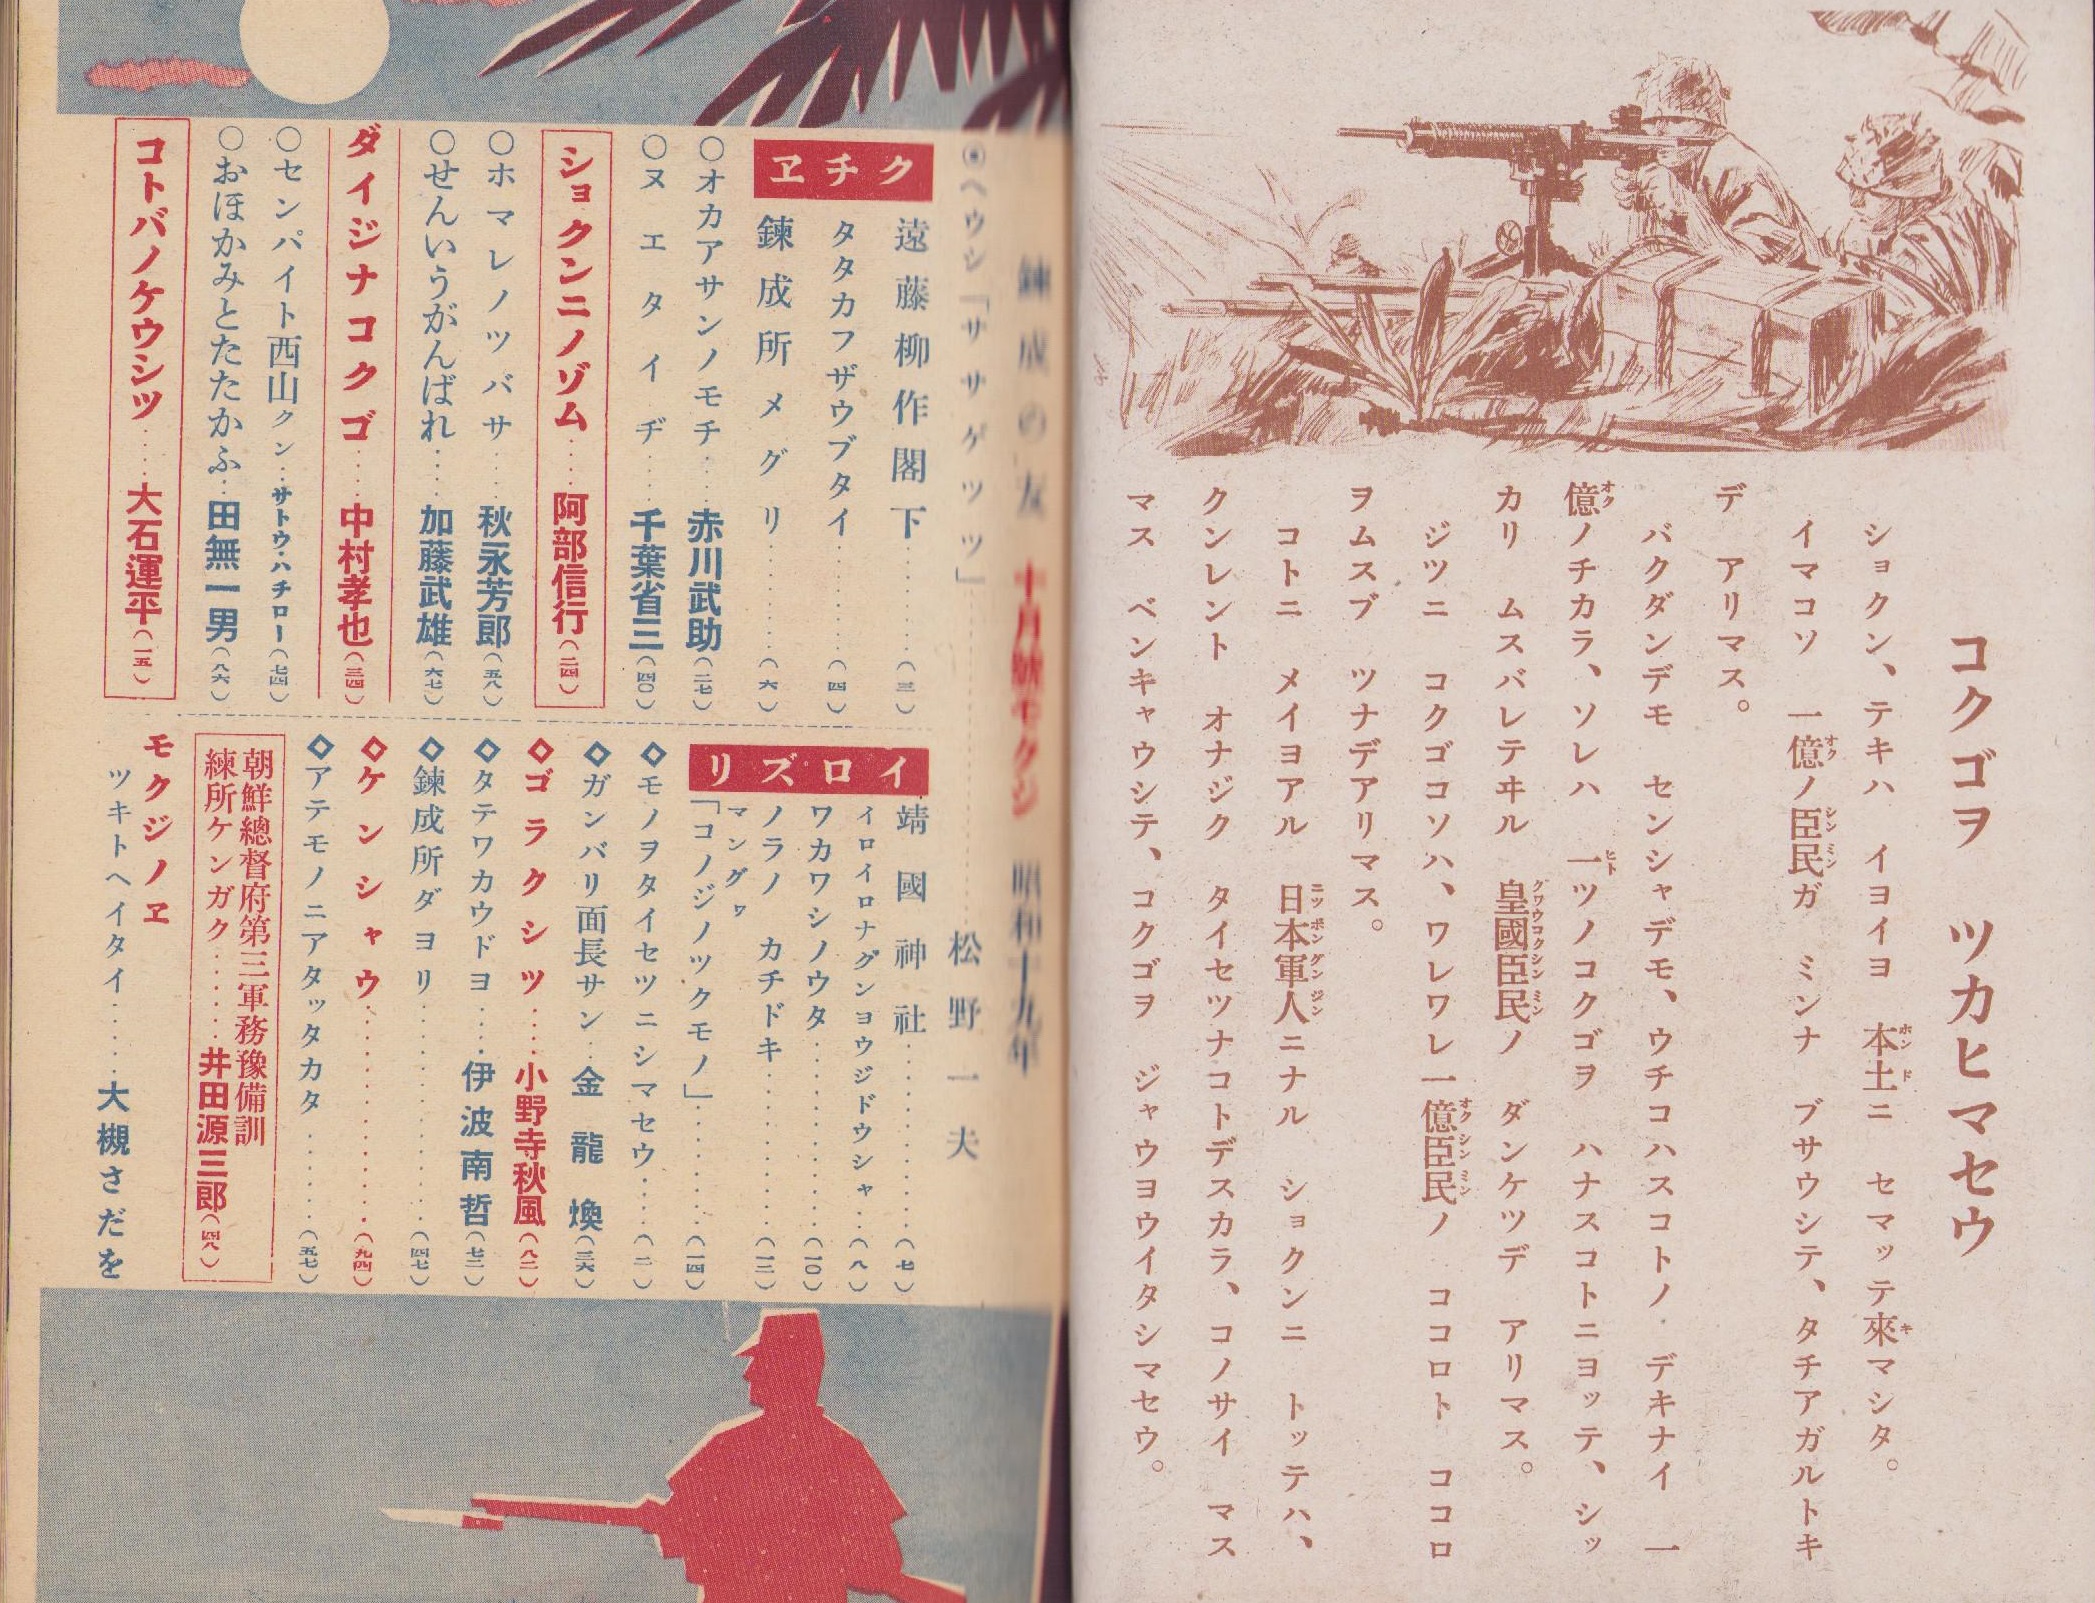 コクゴヲ ツカヒマセウ
ショクン、テキハ イヨイヨ 本土ニ セマッテ來マシタ。
イマコソ 一億ノ臣民ガ ミンナ ブサウシテ、タチアガルトキ
デ アリマス。
バクダンデモ センシャデモ、ウチコハスコトノ デキナイ 一
億ノチカラ、ソレハ 一ツノコクゴヲ ハナスコトニヨッテ、シッ
カリ ムスバレテヰル 皇國臣民ノ ダンケツデ アリマス。
ジツニ コクゴコソハ、ワレワレ一億臣民ノ ココロト ココロ
ヲムスブ ツナデアリマス。
コトニ メイヨアル 日本軍人ニナル ショクンニ トッテハ、
クンレント オナジク タイセツナコトデスカラ、コノサイ マス
マス ベンキャウシテ、コクゴヲ ジャウヨウイタシマセウ。
錬成の友 十月號モクジ 昭和十九年
ヘウシ「ササゲツツ」……松野一夫
クチヱ
遠藤柳作閣下……(三)
タタカフザウブタイ……(四)
錬成所メグリ……(六)
○オカアサンノモチ…赤川武助(二七)
○ヌエタイヂ…千葉省三(四〇)
ショクンニノゾム…阿部信行(二四)
○ホマレノツバサ…秋永芳郎(五八)
○せんいうがんばれ…加藤武雄(六七)
ダイジナコクゴ…中村孝也(三四)
○センパイト西山クン…サトウ・ハチロー(七四)
○おほかみとたたかふ…田無一男(八六)
コトバノケウシツ…大石運平(一五)
イロズリ
靖國神社……(七)
イロイロナグンヨウジドウシャ…(八)
ワカワシノウタ……(一〇)
ノラノ カチドキ……(一二)
マングヮ
「コノジノツクモノ」……(一四)
◇モノヲタイセツニシマセウ…(二)
◇ガンバリ面長サン…金龍煥(三六)
◇ゴラクシツ…小野寺秋風(八二)
◇タテワカウドヨ…伊波南哲(七二)
◇錬成所ダヨリ……(四七)
◇ケンシャウ……(九四)
◇アテモノニアタッタカタ……(五七)
朝鮮總督府第三軍務豫備訓
練所ケンガク……井田源三郎(四八)
モクジノヱ
ツキトヘイタイ……大槻さだを